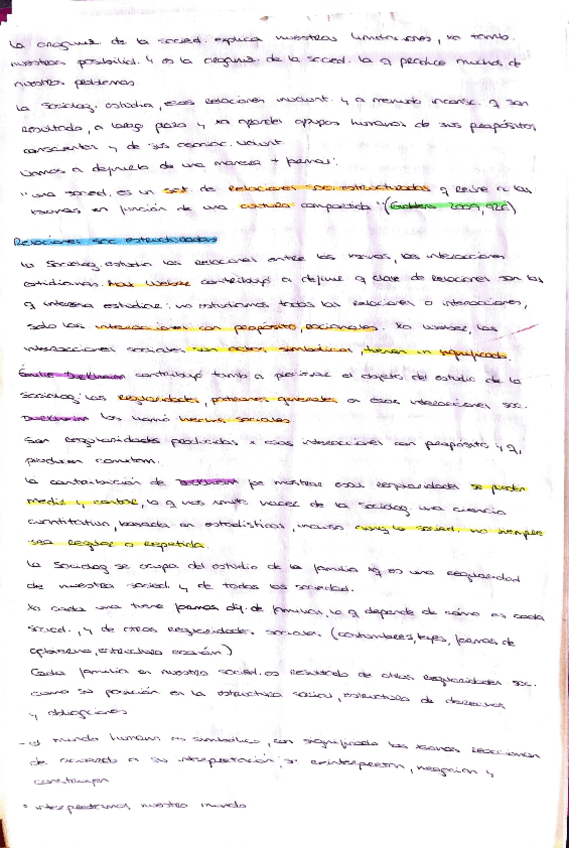 la organiz. de la socied. explica nuestras limitaciones, xo tamb.
nuestras posibilid. y es la organiz. de la socied. la q produce muchos de
nuestros problemas
La Sociolog. estudia, esas relaciones y a menudo inconsc. q son
resultado, a largo plazo y xa grandes grupos humanos de sus propósitos
conscientes y de sus volunt.
Vamos a definirlo de una manera + formal:
"una socied. es un set de relaciones soc. estructuradas q reúne a las
en función de una cultura compartida" (Giddens 2009,
Relaciones soc estructuradas
La Sociolog. estudia las relaciones entre las , las interacciones
cotidianas. Max Weber contribuyó a definir q clase de relaciones son las
q interesa estudiar: no estudiamos todas las relaciones o interacciones,
solo las interacciones con propósito, racionales. Xa Weber, las
interacciones sociales son actos simbólicos, tienen un significado.
Émile Durkheim contribuyó tamb a precisar el objeto del estudio de la
Sociolog: las regularidades, patrones generales en esas interacciones soc.
Durkheim las llamó hechos sociales.
Son regularidades producidas x esas interacciones con propósito y q,
producen
la contribución de Durkheim fue mostrar esas regularidades se pueden
medir y contar, lo q nos permite hacer de la sociolog una ciencia
cuantitativa, basada en estadísticas, incluso la socied. no siempre
sea regular o repetida.
La Sociolog se ocupa del estudio de la familia xq es una regularidad
de nuestra socied. y de todas las sociedad.
Xo cada una tiene formas dif. de familias, lo q depende de cómo es cada
socied., y de otras regularidades sociales (costumbres, leyes, formas de
estructura )
Cada familia en nuestra socied. es resultado de otras regularidades soc.
como su posición en la estructura social, estructura de derechos
y obligaciones
- el mundo humano es simbólico, con significado las reaccionan
de acuerdo a su interpretación, se reinterpretan, negocian y
construyen
• interpretamos nuestro mundo